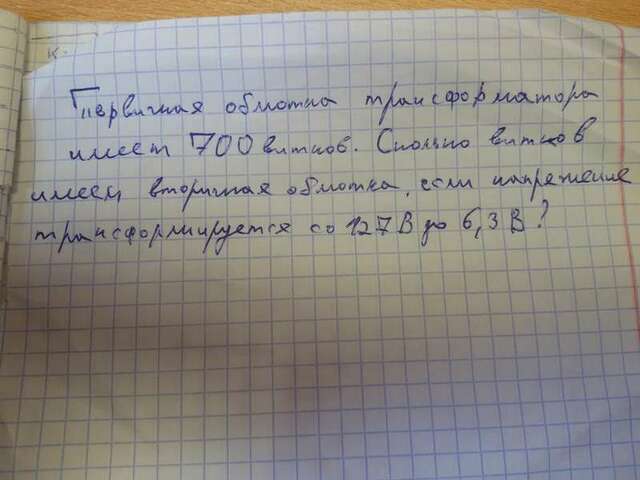 Первичная обмотка трансформатора
имеет 700 витков. Сколько витков
имеет вторичная обмотка, если напряжение
трансформируется со 127 В до 6,3 В?